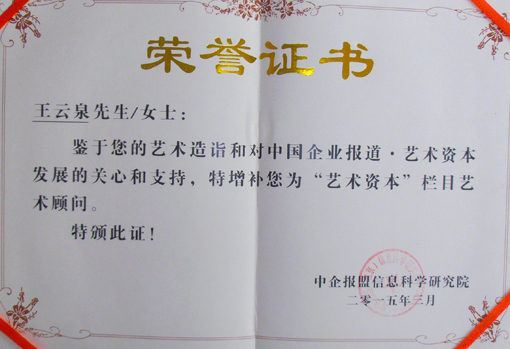 荣誉证书
王云泉先生/女士：
鉴于您的艺术造诣和对中国企业报道·艺术资本
发展的关心和支持，特增补您为“艺术资本”栏目艺
术顾问。
特颁此证！
中企报盟信息科学研究院
二零一五年三月